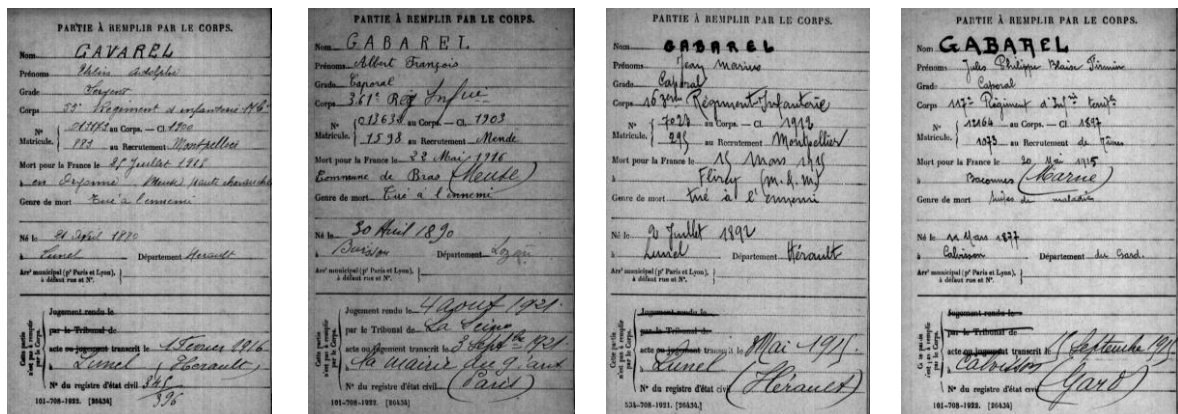 PARTIE À REMPLIR PAR LE CORPS.
Nom GAVAREL
Prénoms Adolphe
Grade Sergent
Corps Régiment d'infanterie
Nº au Corps. — Cl. 1900
Matricule. 883 au Recrutement Montpellier
Mort pour la France le 25 Juillet 1915
à en Argonne Meuse
Genre de mort Tué à l'ennemi
Né le 21 Avril 1880
à Lunel Département Herault
Arrᵗ municipal (pʳ Paris et Lyon), à défaut rue et Nº.
Cette partie n'est pas à remplir par le Corps.
Jugement rendu le
par le Tribunal de
acte ou jugement transcrit le 1 Février 1916
à Lunel Herault
Nº du registre d'état civil 345/396
101-708-1922. [26434]
PARTIE À REMPLIR PAR LE CORPS.
Nom GABAREL
Prénoms Albert François
Grade Caporal
Corps 361ᵉ Reg Infie
Nº 013638 au Corps. — Cl. 1903
Matricule. 1598 au Recrutement Mende
Mort pour la France le 22 Mai 1916
à Commune de Bras (Meuse)
Genre de mort Tué à l'ennemi
Né le 30 Avril 1890
à Buisson Département Lozère
Arrᵗ municipal (pʳ Paris et Lyon), à défaut rue et Nº.
Cette partie n'est pas à remplir par le Corps.
Jugement rendu le 4 aout 1921.
par le Tribunal de La Seine
acte ou jugement transcrit le 3 Septbre 1921
à la mairie du 9ᵉ arrt
Nº du registre d'état civil (Paris)
101-708-1922. [26434]
PARTIE À REMPLIR PAR LE CORPS.
Nom GABAREL
Prénoms Jean Marius
Grade Caporal
Corps Régiment Infanterie
Nº 7023 au Corps. — Cl. 1912
Matricule. 295 au Recrutement Montpellier
Mort pour la France le 15 Mars 1915
à Flirey (M. & M)
Genre de mort tué à l'ennemi
Né le 2 Juillet 1892
à Lunel Département Hérault
Arrᵗ municipal (pʳ Paris et Lyon), à défaut rue et Nº.
Cette partie n'est pas à remplir par le Corps.
Jugement rendu le
par le Tribunal de
acte ou jugement transcrit le Mai 1915.
à Lunel
Nº du registre d'état civil (Hérault)
534-708-1921. [26434.]
PARTIE À REMPLIR PAR LE CORPS.
Nom GABAREL
Prénoms Jules Philippe Blaise Firmin
Grade Caporal
Corps 117ᵉ Régiment d'Infrie territle
Nº 12164 au Corps. — Cl. 1897
Matricule. 1073 au Recrutement de Nîmes
Mort pour la France le 20 Mai 1915
à Baconnes (Marne)
Genre de mort suites de maladie
Né le 11 Mars 1877
à Calvisson Département du Gard.
Arrᵗ municipal (pʳ Paris et Lyon), à défaut rue et Nº.
Cette partie n'est pas à remplir par le Corps.
Jugement rendu le
par le Tribunal de
acte ou jugement transcrit le Septembre 1915
à Calvisson
Nº du registre d'état civil (Gard)
101-708-1922. [26434]